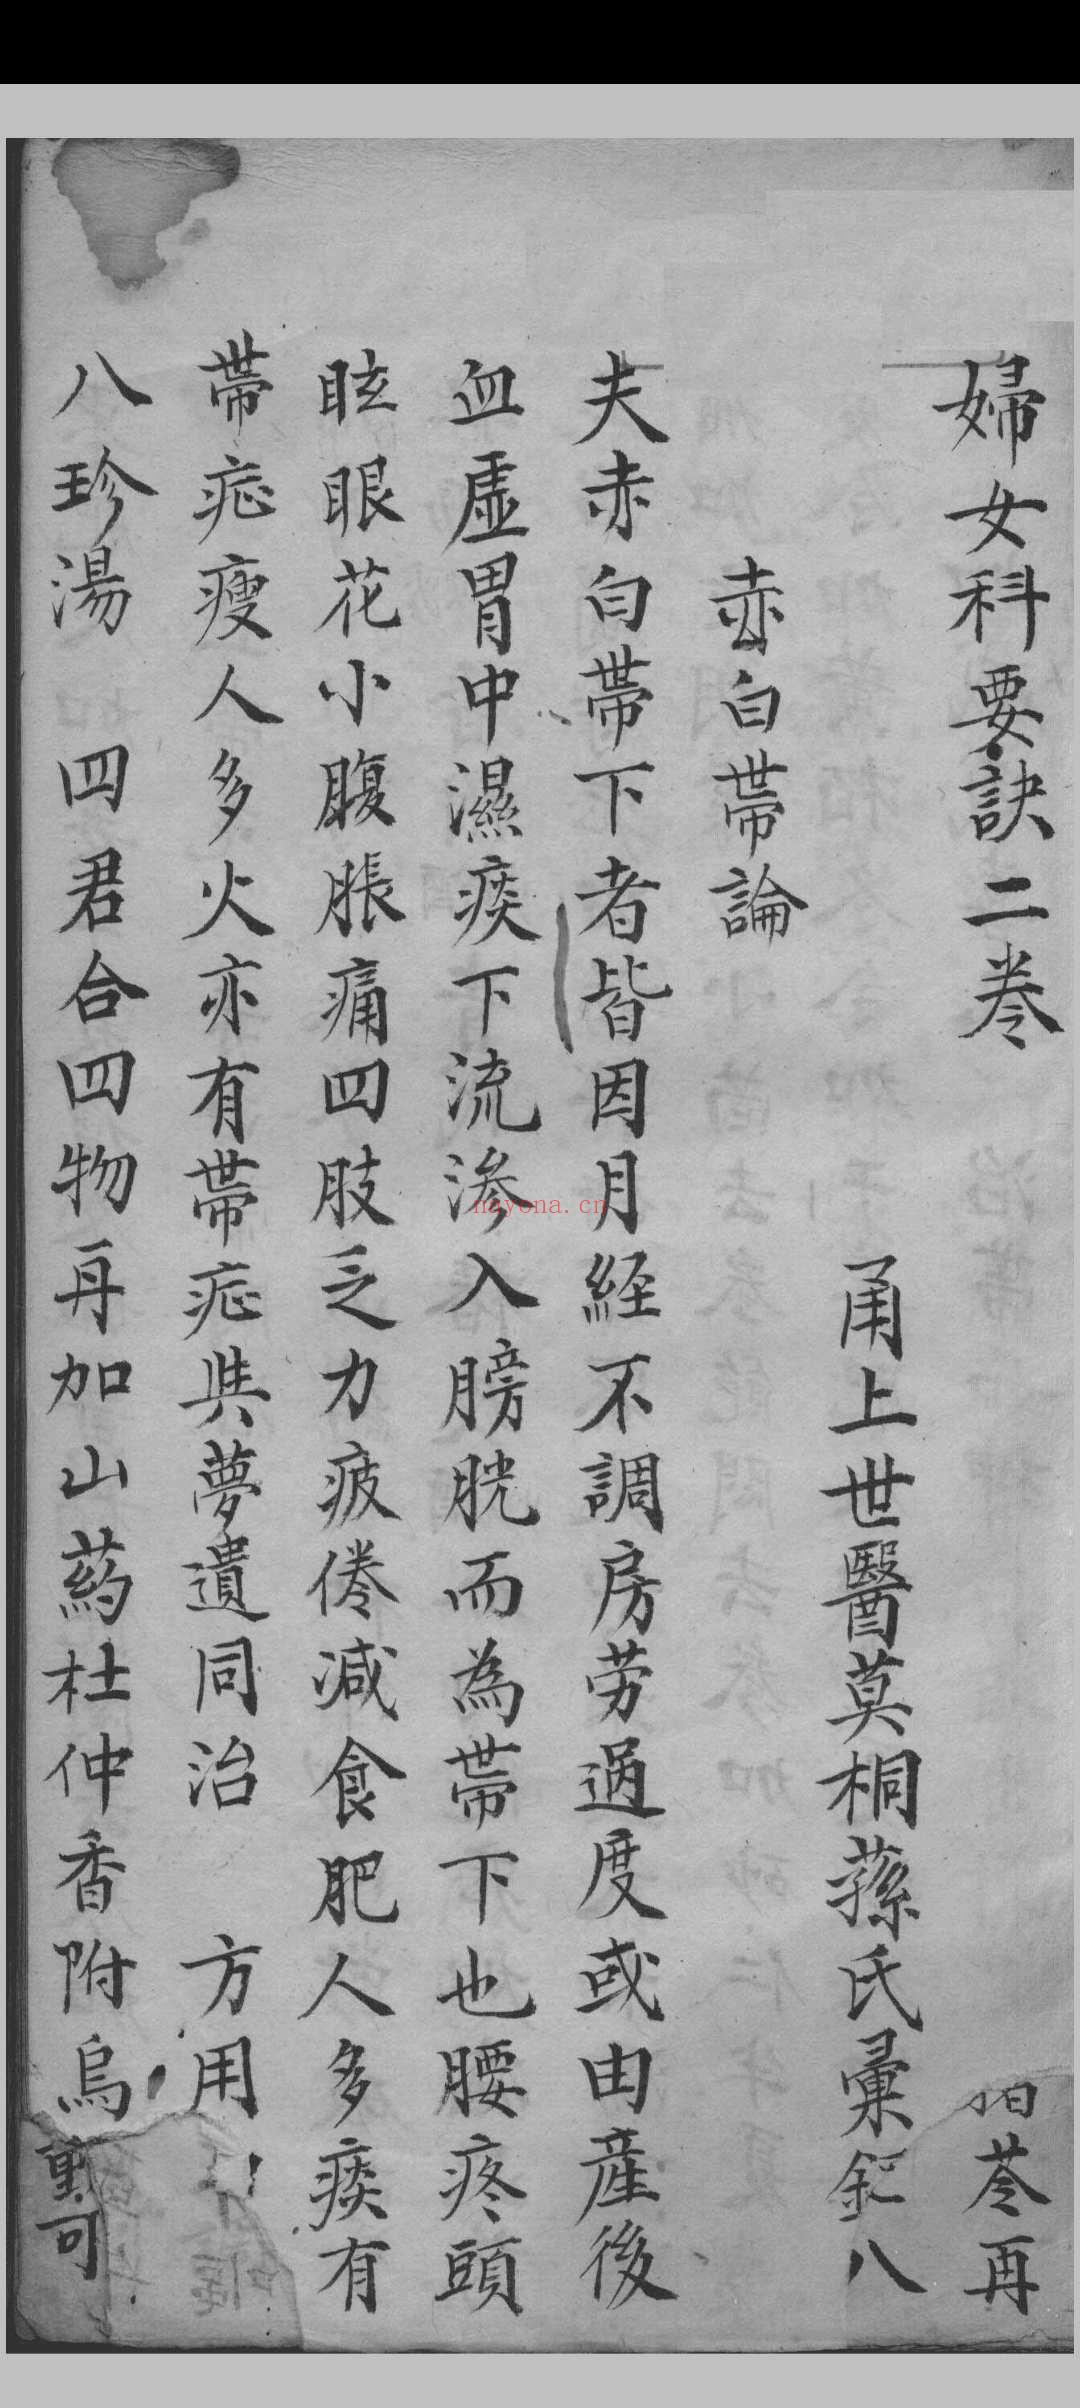 婦女科要訣二卷
苓再
甬上世醫莫桐蓀氏彙鈔八
赤白帶論
夫赤白帶下者皆因月經不調房劳過度或由産後
血虛胃中濕痰下流滲入膀胱而為帶下也腰疼頭
眩眼花小腹脹痛四肢乏力疲倦減食肥人多痰有
帶症瘦人多火亦有帶症與夢遺同治 方用
八珍湯 四君合四物再加山葯杜仲香附烏
可
nayona.cn